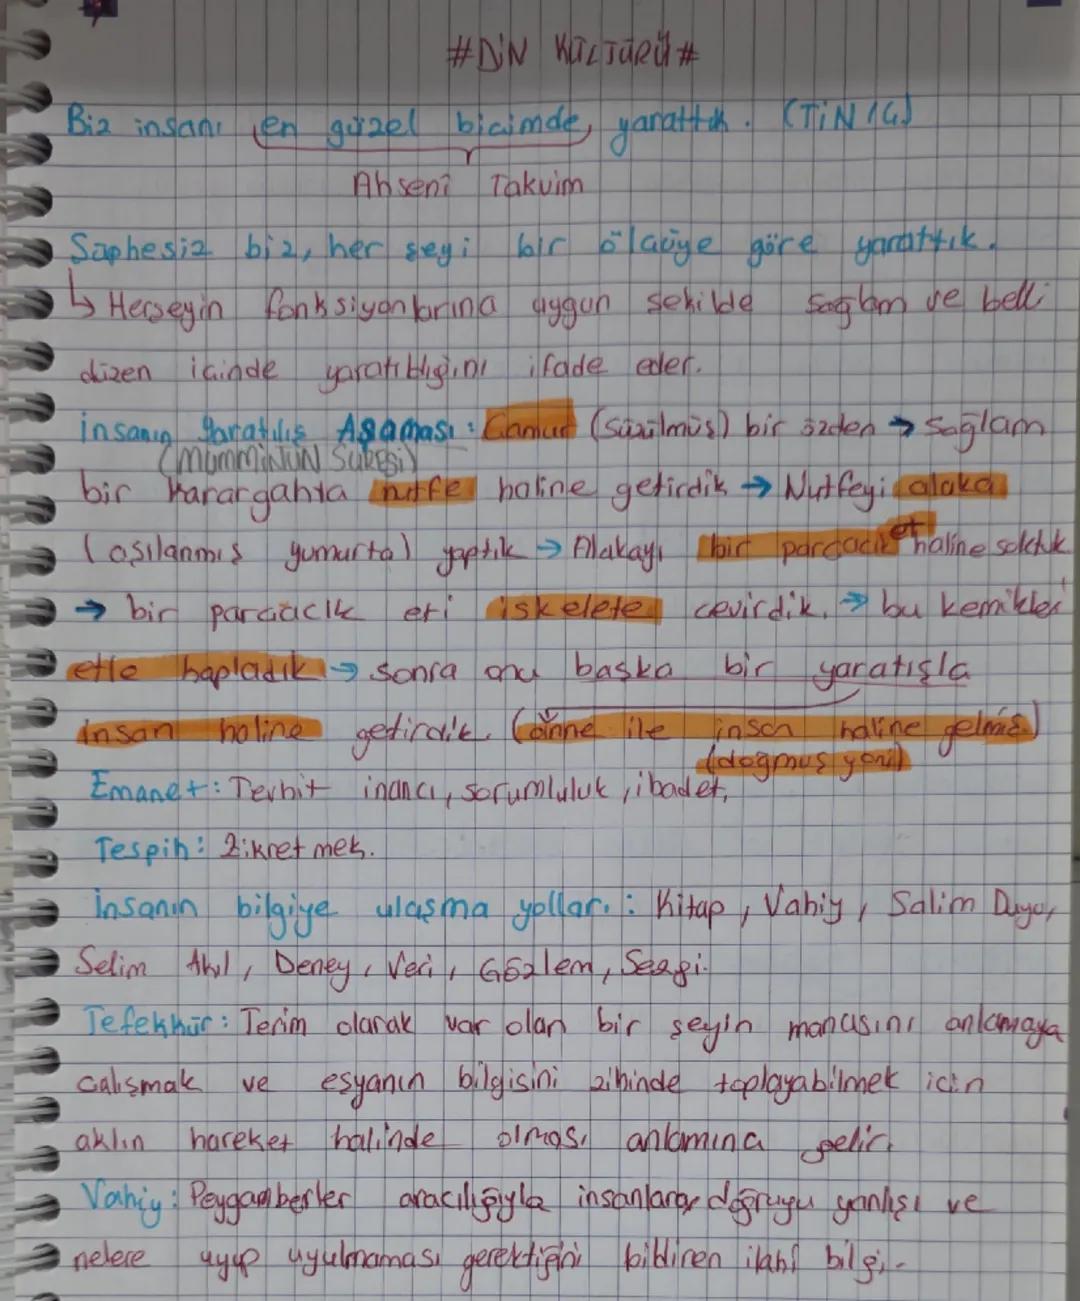 #DİN KÜLTÜRÜ#
Biz insanı en güzel biçimde, yarattık. (TİN/4)
Ahseni Takvim
Şüphesiz biz, her şeyi bir ölçüye göre yarattık.
↳ Herşeyin fonksiyonlarına uygun şekilde sağlam ve belli
düzen içinde yaratıldığını ifade eder.
insanın Yaratılış Aşaması: Çamur (süzülmüş) bir özden → Sağlam
(MÜMMİNUN SURESİ)
bir karargahta nutfe haline getirdik → Nutfeyi alaka
(aşılanmış yumurta) yaptık → Alakayı bir parçacık et haline soktuk
→ bir parçacık eti iskelete çevirdik. → bu kemikleri
etle kapladık → sonra onu başka bir yaratışla
insan haline getirdik. (anne ile insan haline gelmiş)
(doğmuş yani)
Emanet: Tevhit inancı, sorumluluk, ibadet,
Tespih: Zikretmek.
İnsanın bilgiye ulaşma yolları: Kitap, Vahiy, Salim Duyu,
Selim Akıl, Deney, Veri, Gözlem, Sezgi.
Tefekkür: Terim olarak var olan bir şeyin manasını anlamaya
çalışmak ve eşyanın bilgisini zihinde toplayabilmek için
aklın hareket halinde olması anlamına gelir.
Vahiy: Peygamberler aracılığıyla insanlara doğruyu yanlışı ve
nelere uyup uyulmaması gerektiğini bildiren ilahi bilgi.